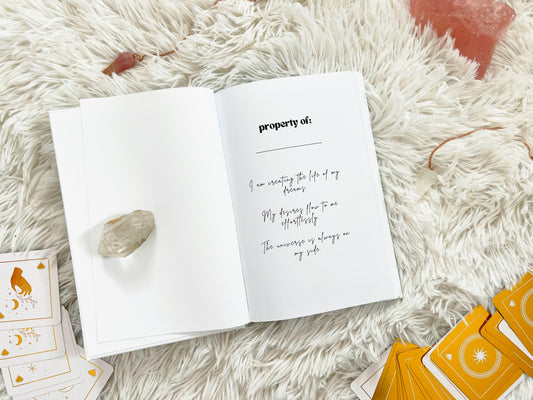 property of:
I am creating the life of my
dreams
My desires flow to me
effortlessly
The universe is always on
my side